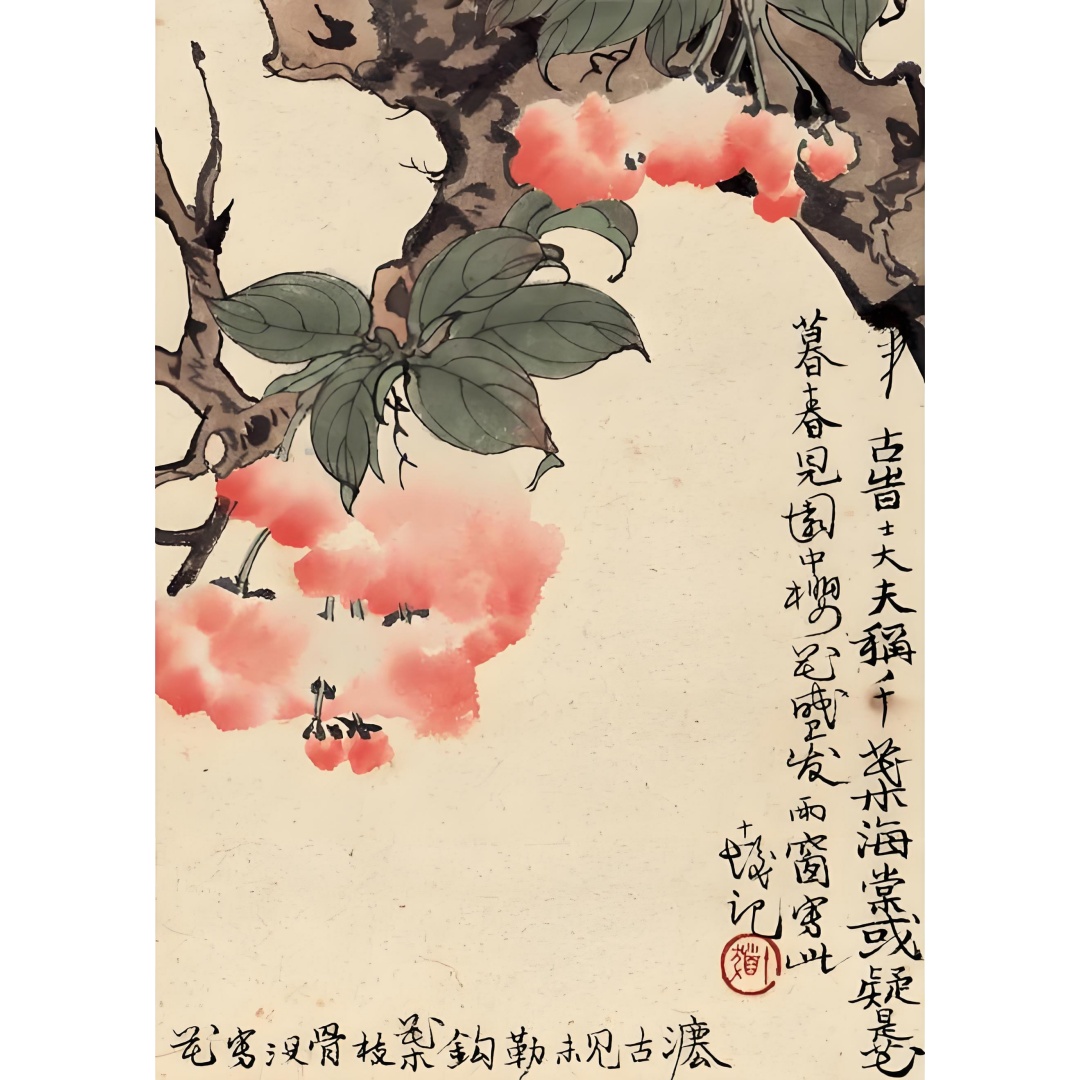 古昔士大夫稱千葉海棠或疑是花
暮春見園中櫻花盛发雨窗寫此
記
花寫没骨枝葉鈎勒未見古灋